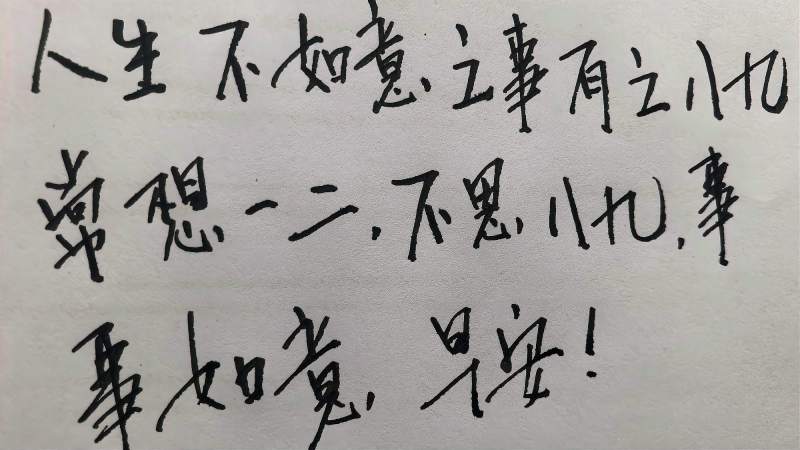 人生不如意之事有之八九
常想一二,不思八九,事
事如意 早安!